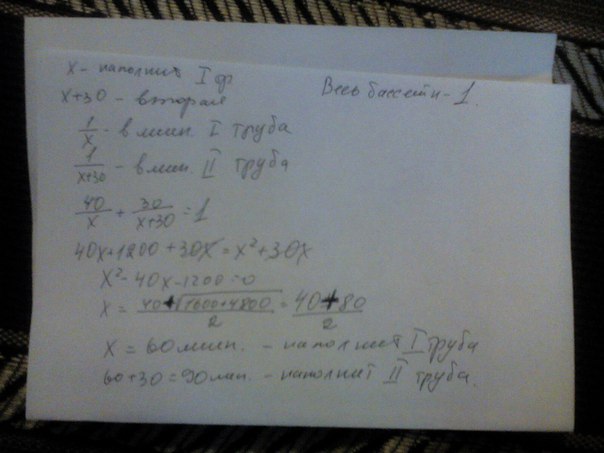 x - наполнит I тр
Весь бассейн - 1.
x+30 - вторая
1/x - в мин. I труба
1/(x+30) - в мин. II труба
40/x + 30/(x+30) = 1
40x+1200+30x = x²+30x
x²-40x-1200=0
x = (40+√(1600+4800))/2 = (40+80)/2
x = 60 мин. - наполнит I труба
60+30=90 мин. - наполнит II труба.